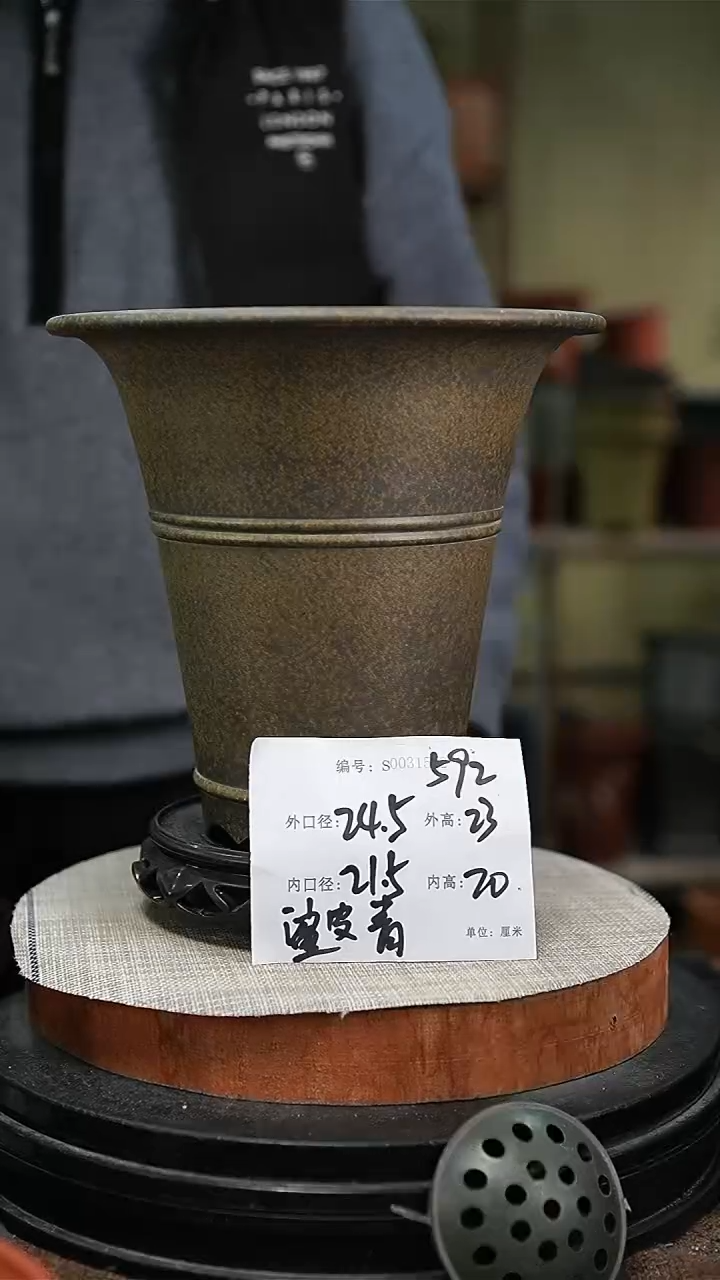 PARIS
LONDON
编号: S00315 592
外口径: 24.5 外高: 23
内口径: 21.5 内高: 20
皮青
单位: 厘米